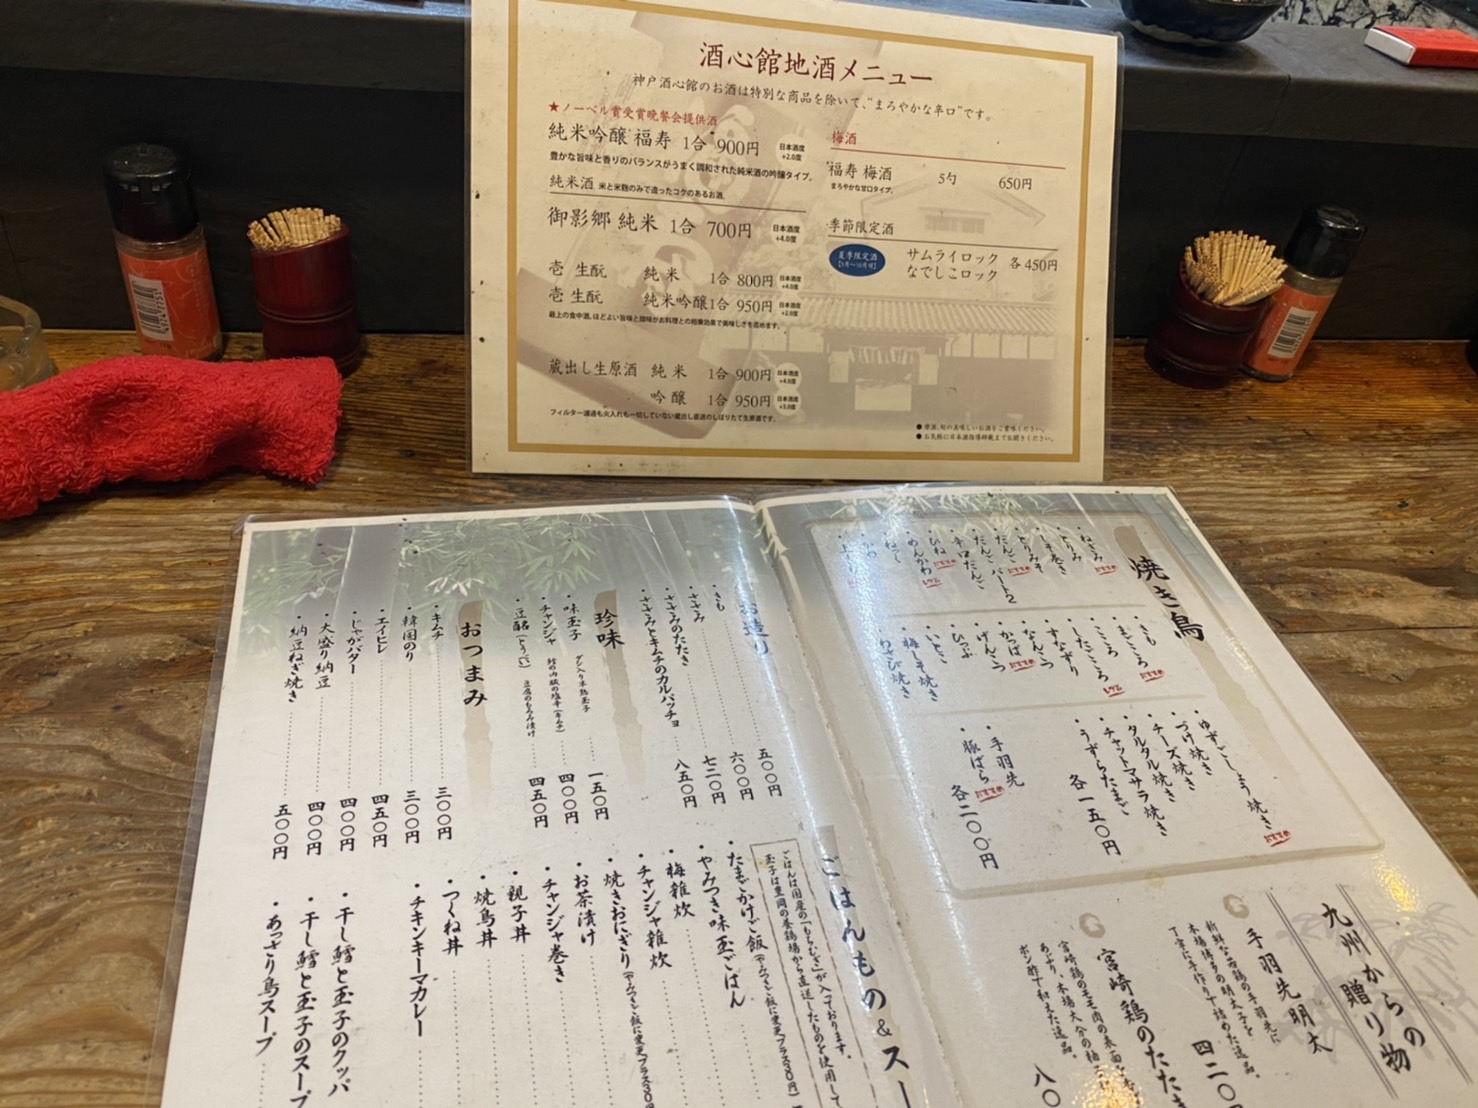 酒心館地酒メニュー
神戸酒心館のお酒は特別な商品を除いて、"まろやかな辛口"です。
★ノーベル賞受賞晩餐会提供酒
純米吟醸 福寿 1合 900円 日本酒度 +2.0度
豊かな旨味と香りのバランスがうまく調和された純米酒の吟醸タイプ。
純米酒 米と米麹のみで造ったコクのあるお酒。
御影郷 純米 1合 700円 日本酒度 +4.0度
壱 生酛 純米 1合 800円 日本酒度 +4.0度
壱 生酛 純米吟醸 1合 950円 日本酒度 +2.0度
蔵出し生原酒 純米 1合 900円 日本酒度
吟醸 1合 950円 日本酒度
フィルター濾過も火入れも一切していない蔵出し直送のしぼりたて生原酒です。
梅酒
福寿 梅酒 5勺 650円
まろやかな甘口タイプ。
季節限定酒
夏季限定酒
サムライロック
なでしこロック 各450円
焼き鳥
・ねぎみ おすすめ
・とりみ
・しそ巻き
・とりみそ
・だんご おすすめ
・だんご パート2
・辛口だんご
・ひね おすすめ
・めんかわ レアム
・きも
・まどごころ おすすめ
・こころ
・したごころ
・すなずり
・なんこつ
・かっぱ おすすめ
・げんこつ
・ひっぷ
・いとこ
・梅しそ焼き
・わさび焼き
・ゆずごしょう焼き おすすめ
・づけ焼き
・チーズ焼き
・タルタル焼き
・チャットマサラ焼き
・うずらたまご
各一五〇円
・手羽先
・豚ばら おすすめ
各二〇〇円
九州からの贈り物
手羽先明太
新鮮な若鶏の手羽先に
本場博多の明太子を
丁寧に手作りで詰めた逸品。
宮崎鶏のたたき
お造り
・きも 五〇〇円
・ささみ 六〇〇円
・ささみのたたき 七二〇円
・ささみとキムチのカルパッチョ 八五〇円
珍味
・味玉子 ダシ入り半熟玉子 一五〇円
・チャンジャ 鱈の内臓の塩辛(キムチ) 四〇〇円
・豆酩(とうべい) 豆腐のもろみ漬け 四五〇円
おつまみ
・キムチ 三〇〇円
・韓国のり 三〇〇円
・エイヒレ 四五〇円
・じゃがバター 四〇〇円
・大盛り納豆 四〇〇円
・納豆ねぎ焼き 五〇〇円
ごはんもの&スー
ごはんは国産の「もちむぎ」が入っております。
・たまごかけご飯
・やみつき味玉ごはん
・梅雑炊
・チャンジャ雑炊
・焼きおにぎり
・お茶漬け
・チャンジャ巻き
・親子丼
・焼鳥丼
・つくね丼
・チキンキーマカレー
・干し鱈と玉子のクッパ
・干し鱈と玉子のスープ
・あっさり鳥スープ